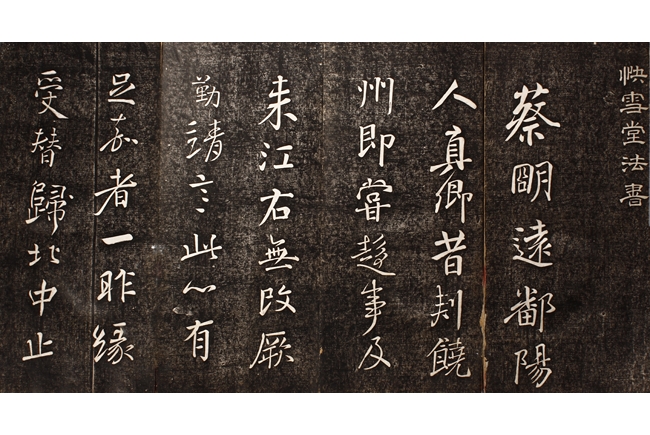 快雪堂法書
蔡眀遠鄱陽
人真卿昔刾饒
州即甞趍事及
来江右無改厥
勤靖言此心有
足嘉者一昨緣
受替歸北中止